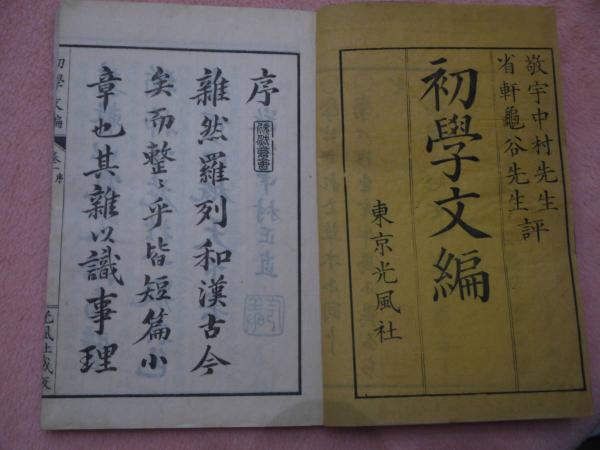 敬宇中村先生
省軒龜谷先生評
初學文編
東京光風社
序
雜然羅列和漢古今
矣而整〻乎皆短篇小
章也其雜以識事理
初學文編
卷一序
光風社藏版